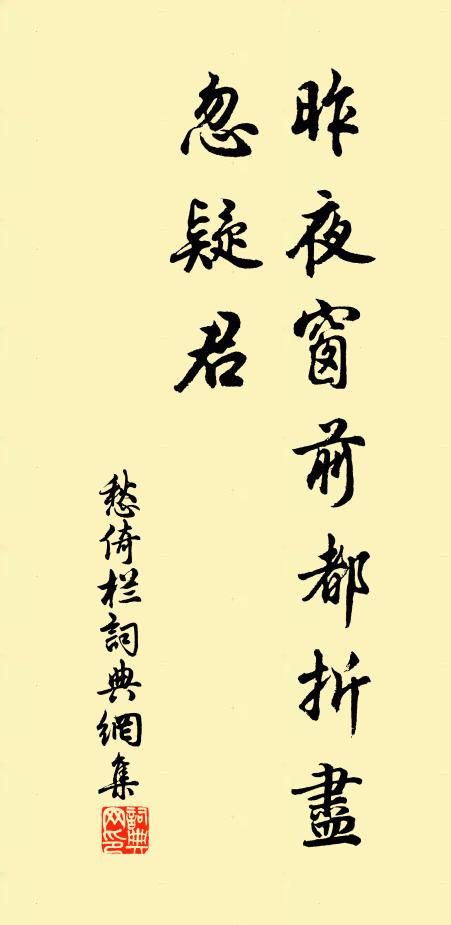 昨夜窗前都折盡
忽疑君
愁倚栏詞典網集
詞典网印